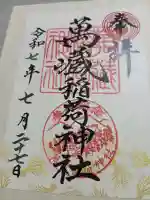 奉拝
萬蔵稲荷神社
令和七年七月二十七日